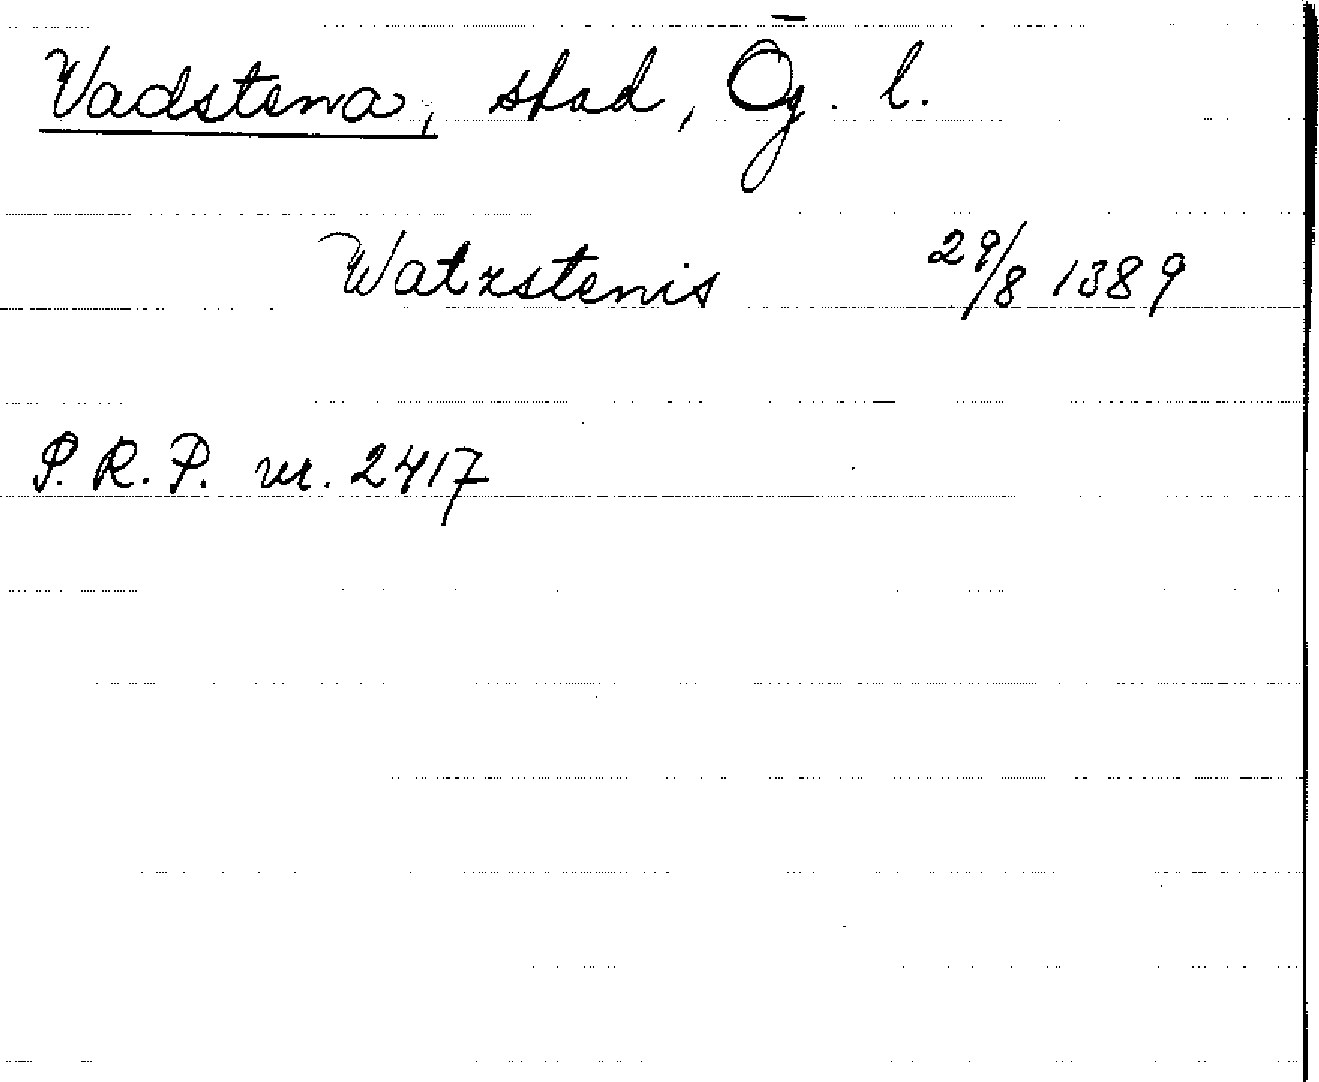 Vadstena, stad, Ög. l.
Watzstenis 29/8 1389
P. R. P. nr. 2417